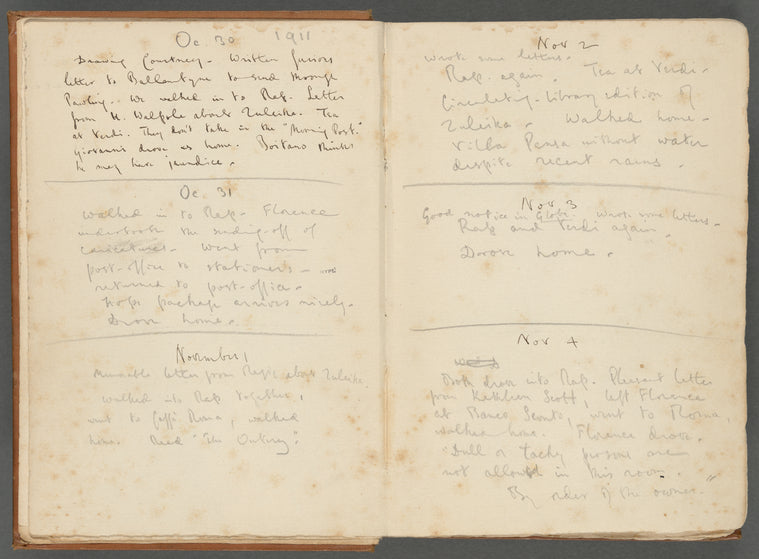 Oc. 30 1911
Drawing Courtney. Written furious
letter to Ballantyne to send through
Pawling. We walked in to Rap. Letter
from H. Walpole about Zuleika. Tea
at Verdi. They don't take in the "Morning Post."
Giovanni drove us home. Boitano thinks
he may have jaundice.
Oc. 31
Walked in to Rap. Florence
undertook the sending-off of
caricatures. Went from
post-office to stationers –
returned to post-office.
Hope package arrives nicely.
Drove home.
November 1
letter from Reggie about Zuleika.
Walked into Rap together,
went to Caffè Roma, walked
home. Read "The Outcry".
Nov 2
Wrote some letters.
Rap. again. Tea at Verdi.
Circulating-library edition of
Zuleika. Walked home.
Villa Pensa without water
despite recent rains.
Nov 3
Good notice in Globe. Wrote some letters.
Rap and Verdi again.
Drove home.
Nov 4
Both drove into Rap. Pleasant letter
from Kathleen Scott, left Florence
at Banco Sconto, went to Roma,
walked home. Florence drove.
"Dull or tachy persons are
not allowed in this room.
By order of the owner."